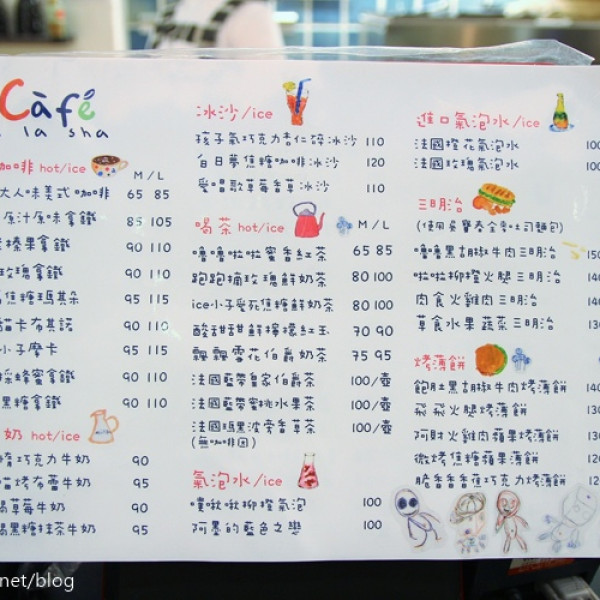 Café
la sha
咖啡 hot/ice M/L
大人味美式咖啡 65 85
原汁原味拿鐵 85 105
榛果拿鐵 90 110
玫瑰拿鐵 90 110
焦糖瑪其朵 95 115
貓卡布其諾 90 110
小子摩卡 95 115
採蜂蜜拿鐵 90 110
黑糖拿鐵 90 110
奶 hot/ice
巧克力牛奶 90
烤布蕾牛奶 95
草莓牛奶 90
黑糖抹茶牛奶 95
冰沙/ice
孩子氣巧克力杏仁碎冰沙 110
白日夢焦糖咖啡冰沙 120
愛唱歌草莓香草冰沙 110
喝茶 hot/ice M/L
嚕嚕啦啦蜜香紅茶 65 85
跑跑摘玫瑰鮮奶茶 80 100
ice小子愛死焦糖鮮奶茶 80 100
酸甜甜鮮檸檬紅玉 70 90
飄飄雪花伯爵奶茶 75 95
法國藍帶皇家伯爵茶 100/壺
法國藍帶蜜桃水果茶 100/壺
法國瑪黑波旁香草茶 100/壺
(無咖啡因)
氣泡水/ice
噗啾啾柳橙氣泡 100
阿墨的藍色之戀 100
進口氣泡水/ice
法國橙花氣泡水 100
法國玫瑰氣泡水 100
三明治
(使用吳寶春全麥吐司麵包)
嚕嚕黑胡椒牛肉三明治 150
啦啦柳橙火腿三明治 140
肉食火雞肉三明治 140
草食水果蔬菜三明治 130
烤薄餅
飽肚黑胡椒牛肉烤薄餅 140
飛飛火腿烤薄餅 130
阿財火雞肉蘋果烤薄餅 130
微烤焦糖蘋果薄餅 120
脆香香香蕉巧克力烤薄餅 120
net/blog